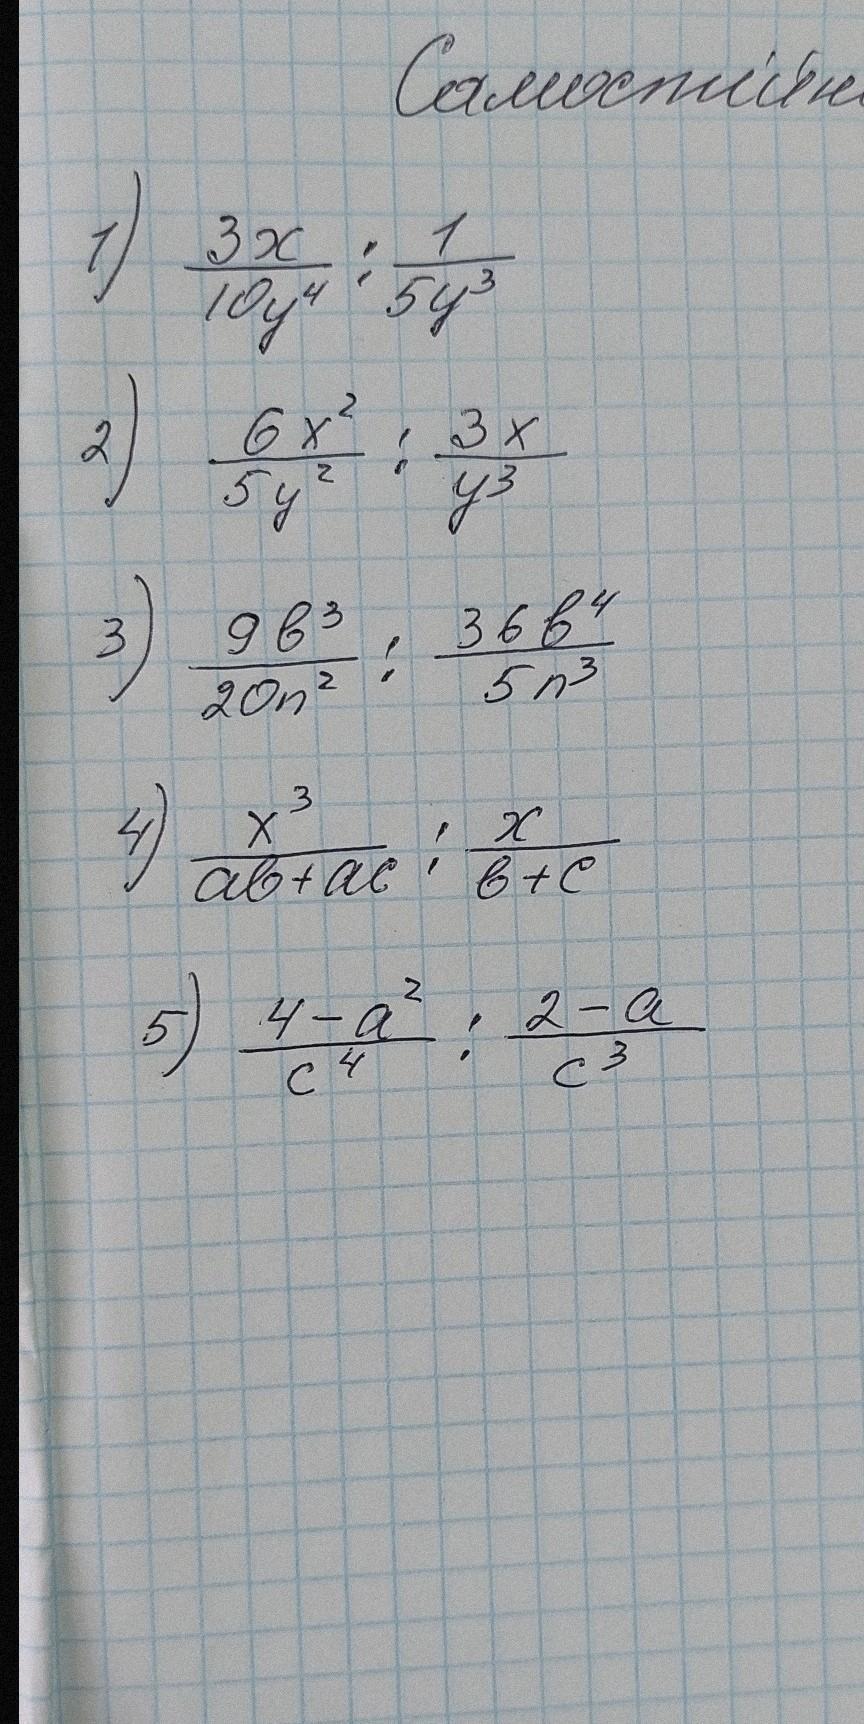 Самостійн
1) 3x/10y⁴ : 1/5y³
2) 6x²/5y² : 3x/y³
3) 9b³/20n² : 36b⁴/5n³
4) x³/ab+ac : x/b+c
5) 4-a²/c⁴ : 2-a/c³